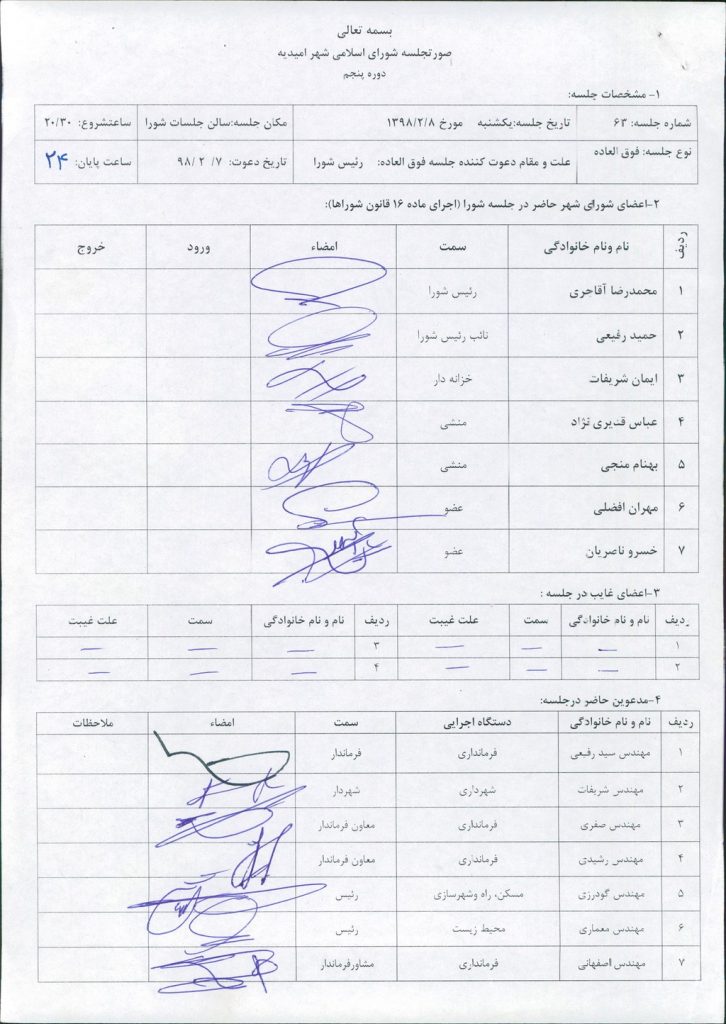 بسمه تعالی
صورتجلسه شورای اسلامی شهر امیدیه
دوره پنجم
۱- مشخصات جلسه:
شماره جلسه: ۶۳ تاریخ جلسه:یکشنبه مورخ ۱۳۹۸/۲/۸ مکان جلسه:سالن جلسات شورا ساعتشروع: ۲۰/۳۰
نوع جلسه: فوق العاده علت و مقام دعوت کننده جلسه فوق العاده: رئیس شورا تاریخ دعوت: ۷/ ۲ /۹۸ ساعت پایان: ۲۴
۲-اعضای شورای شهر حاضر در جلسه شورا (اجرای ماده ۱۶ قانون شوراها):
ردیف نام ونام خانوادگی سمت امضاء ورود خروج
۱ محمدرضا آقاجری رئیس شورا
۲ حمید رفیعی نائب رئیس شورا
۳ ایمان شریفات خزانه دار
۴ عباس قدیری نژاد منشی
۵ بهنام منجی منشی
۶ مهران افضلی عضو
۷ خسرو ناصریان عضو
۳-اعضای غایب در جلسه :
ردیف نام و نام خانوادگی سمت علت غیبت ردیف نام و نام خانوادگی سمت علت غیبت
۱ — — — ۳ — — —
۲ — — — ۴ — — —
۴-مدعوین حاضر درجلسه:
ردیف نام و نام خانوادگی دستگاه اجرایی سمت امضاء ملاحظات
۱ مهندس سید رفیعی فرمانداری فرماندار
۲ مهندس شریفات شهرداری شهردار
۳ مهندس صفری فرمانداری معاون فرماندار
۴ مهندس رشیدی فرمانداری معاون فرماندار
۵ مهندس گودرزی مسکن، راه وشهرسازی رئیس
۶ مهندس معماری محیط زیست رئیس
۷ مهندس اصفهانی فرمانداری مشاورفرماندار